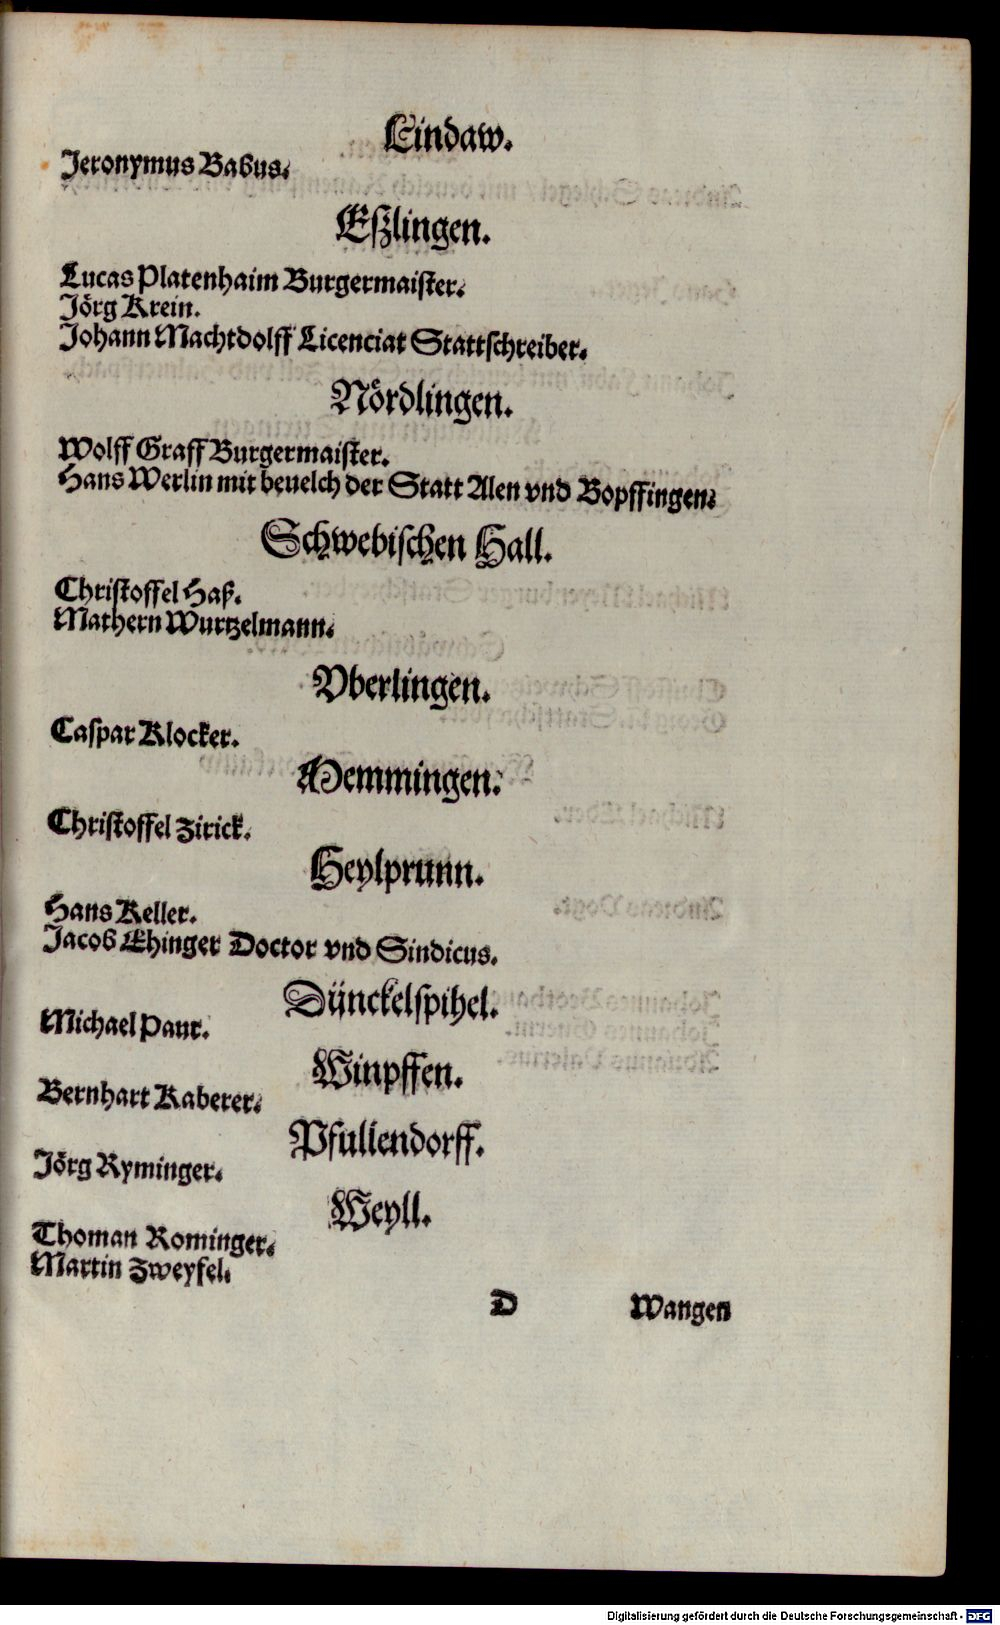 Lindaw.
Jeronymus Babus.
Eßlingen.
Lucas Platenhaim Burgermaister.
Jörg Krein.
Johann Machtdolff Licenciat Stattschreiber.
Nördlingen.
Wolff Graff Burgermaister.
Hans Werlin mit beuelch der Statt Alen vnd Bopffingen.
Schwebischen Hall.
Christoffel Haß.
Mathern Wurtzelmann.
Vberlingen.
Caspar Klocker.
Memmingen.
Christoffel Zirick.
Heylprunn.
Hans Keller.
Jacob Ehinger Doctor vnd Sindicus.
Dünckelspihel.
Michael Paur.
Winpffen.
Bernhart Kaberer.
Pfullendorff.
Jörg Ryminger.
Weyll.
Thoman Rominger.
Martin Zweyfel.
D Wangen
Digitalisierung gefördert durch die Deutsche Forschungsgemeinschaft - DFG